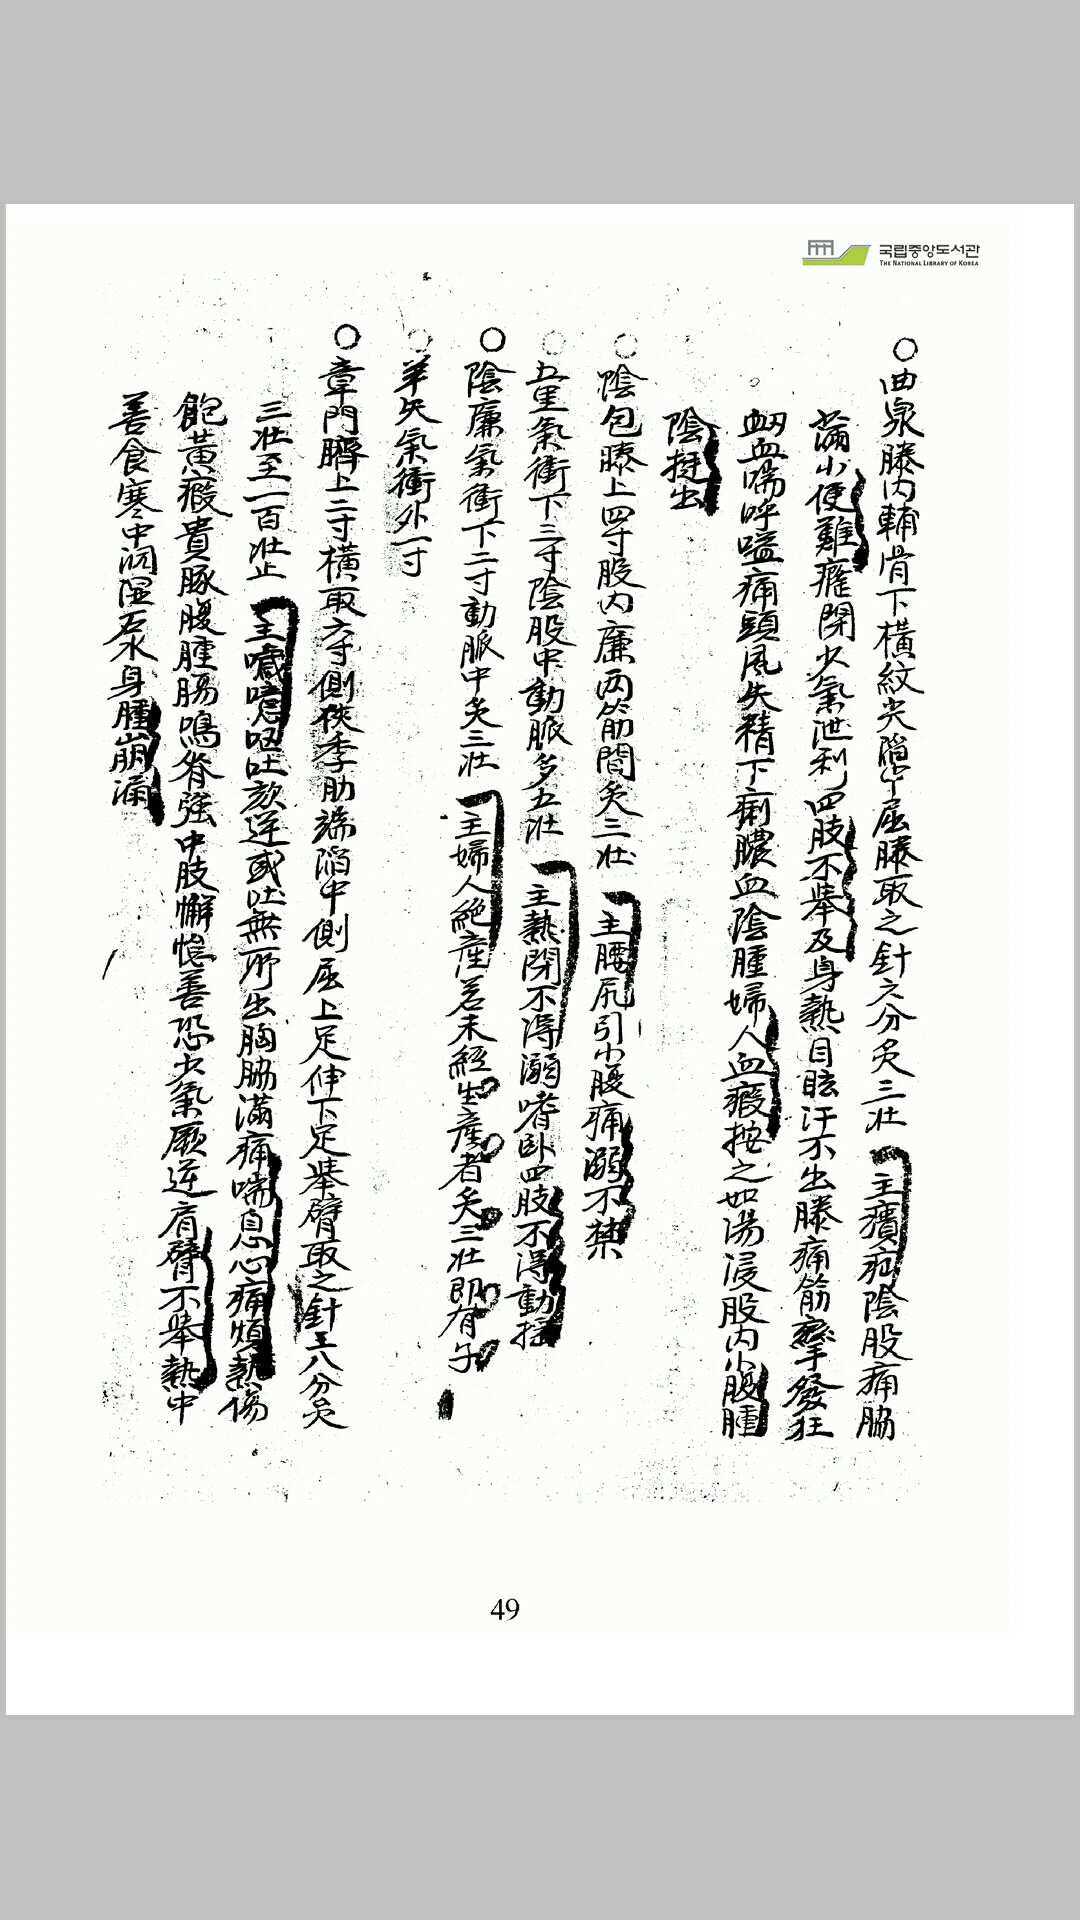 국립중앙도서관
THE NATIONAL LIBRARY OF KOREA
○曲泉膝內輔骨下橫紋尖陷中屈膝取之針六分灸三壯 主㿉疝陰股痛脇
滿小便難癃閉少氣泄利四肢不擧及身熱目眩汗不出膝痛筋攣發狂
衄血喘呼嗌痛頭風失精下痢膿血陰腫婦人血瘕按之如湯浸股內小腹腫
陰挺出
○陰包膝上四寸股內廉两筋間灸三壯 主腰尻引小腹痛溺不禁
○五里氣衝下三寸陰股中動脈灸五壯 主熱閉不得溺嗜卧四肢不得動搖
○陰廉氣衝下二寸動脈中灸三壯 主婦人絶産若未經生産者灸三壯即有子
○羊矢氣衝外一寸
○章門臍上二寸橫取六寸側俠季肋端陷中側屈上足伸下足擧臂取之針八分灸
三壯至一百壯止 主噦噫嘔吐欬逆或吐無所出胸脇滿痛喘息心痛煩熱傷
飽黃瘕賁豚腹腫腸鳴脊强中肢懈惰善恐少氣厥逆肩臂不擧熱中
善食寒中洞溫石水身腫崩漏
49